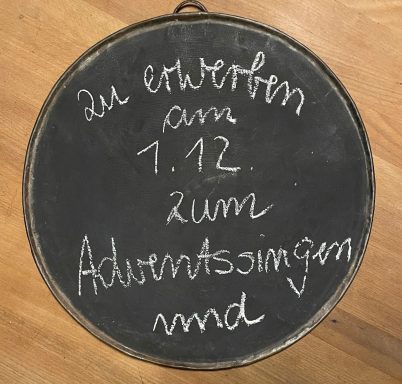 zu erwerben
am
1.12.
zum
Adventssingen
und